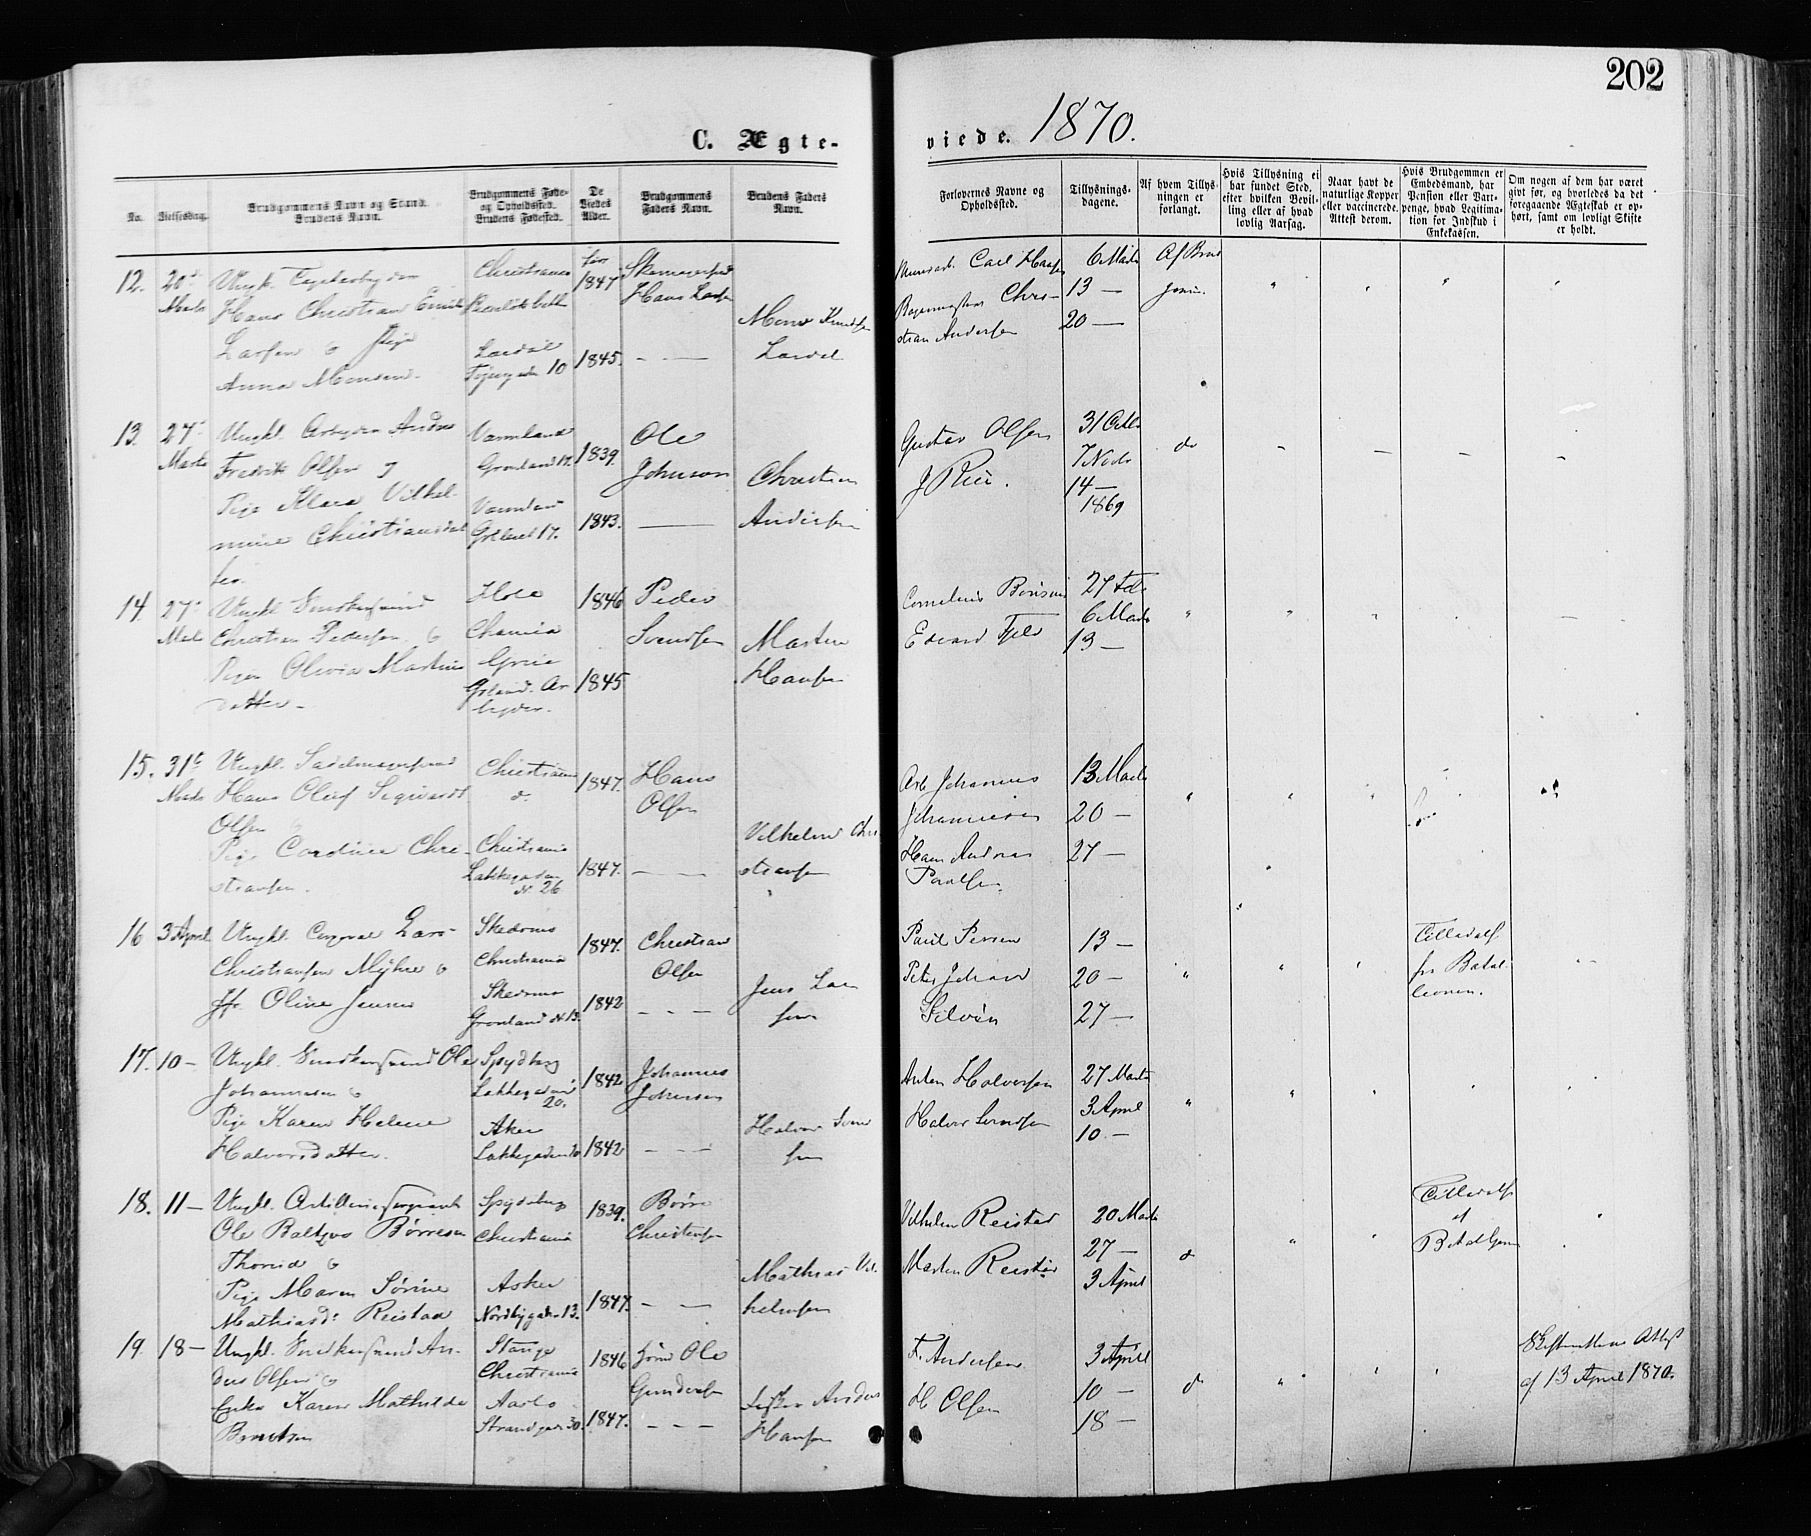 202
C. Ægte-
viede. 1870.
No.
Vielsesdag.
Brudgommens Navn og Stand.
Brudens Navn.
Brudgommens Føde-
og Opholdssted.
Brudens Fødested.
De
Viedes
Alder.
Brudgommens
Faders Navn.
Brudens Faders
Navn.
Forlovernes Navne og
Opholdssted.
Tillysnings-
dagene.
Af hvem Tillys-
ningen er
forlangt.
Hvis Tillysning ei
har fundet Sted,
efter hvilken Bevil-
ling eller af hvad
lovlig Aarsag.
Naar havt de
naturlige Kopper
eller vaccinerede.
Attest derom.
Hvis Brudgommen er
Embedsmand, har
Pension eller Vart-
penge, hvad Legitima-
tion for Indskud i
Enkekassen.
Om nogen af dem har været
gift før, og hvorledes da det
foregaaende Ægteskab er op-
hørt, samt om lovligt Skifte
er holdt.
12.
20
Marts
Ungk.
Hans Christian Emil
Larsen & Pige
Anna Monsen.
Christiania
Lærdal
10
1847
1845.
Hans Larsen
Mons Knudsen
Lærdal
Carl Hansen
Chri-
stian Andersen
6 Marts
13 —
20 —
Af Brud
13.
27
Marts
Ungkl. Arbeider Andreas
Fredrik Olsen &
Pige Klara Vilhel-
mine Christiansdat
ter.
Varmland
Grønland 17.
Varmland
17.
1839.
1843.
Ole
Johnson
Christian
Andersen
Gustav Olsen
31 Octbr
7 Novbr
14 —
1869
do
14
27
Ungkl. Snedkersvend
Christian Pedersen &
Pige Olivia Martins
datter
Hole
Chania
1846
1845
Peder
Svendsen
Martin
Hansen
Cornelius
Edvard
27 Feb
6 Marts
13 —
15.
31
Marts
Ungkl. Sadelmagersvend
Hans Oluf Sigvardt
Olsen &
Pige Cordine Chri-
stiansen.
Christiania
d.
Christiania
Lakkegaden
N 26
1847.
1847.
Hans
Olsen
Vilhelm Chri
stiansen
Arb Johannes
Johannesen
Hans Andreas
Paulsen
13 Marts
20 —
27 —
16
3 April
Ungkl. Corporal Lars
Christiansen Myhre &
Jfr. Oline Jensen
Skedsmo
Christiania
Skedsmo
Grønland N 13.
1847.
1842
Christian
Olsen
Jens Lar
sen
Paul Persen
Peter Johan
13 —
20 —
27 —
Tilladelse
fra Batal-
lionen.
17.
10 —
Ungkl. Snedkersvend Ole
Johannesen &
Pige Karen Helene
Halvorsdatter.
Spydberg
Lakkegaden
20.
Aker
Lakkegaden 20
1842
1842
Johannes
Johnsen
Halvor Svend
sen
Anton Halvorsen
Halvor Svendsen
27 Marts
3 April
10 —
18.
11 —
Ungkl. Artillerisergeant
Ole Baltzer Børresen
&
Pige Maren Sørine
Mathiasd: Reistad
Spydeberg
Christiania
Asker
Nordbygaden 13.
1839.
1847.
Børre
Christensen
Mathias Vil-
helmsen
Vilhelm Reistad
Morten Reistad
20 Marts
27 —
3 April
do
Tilladelse
af
Bataljonen
19.
18 —
Ungkl. Snedkersvend An-
ders Olsen &
Enke Karen Mathilde
Berntsen
Stange
Christiania
Strandgaden 30.
1846
1847.
Ole
Gundersen
Anders
Hansen
F. Andersen
H Olsen
3 April
10 —
18 —
do
Skifterettens Attest
af 13 April 1870.